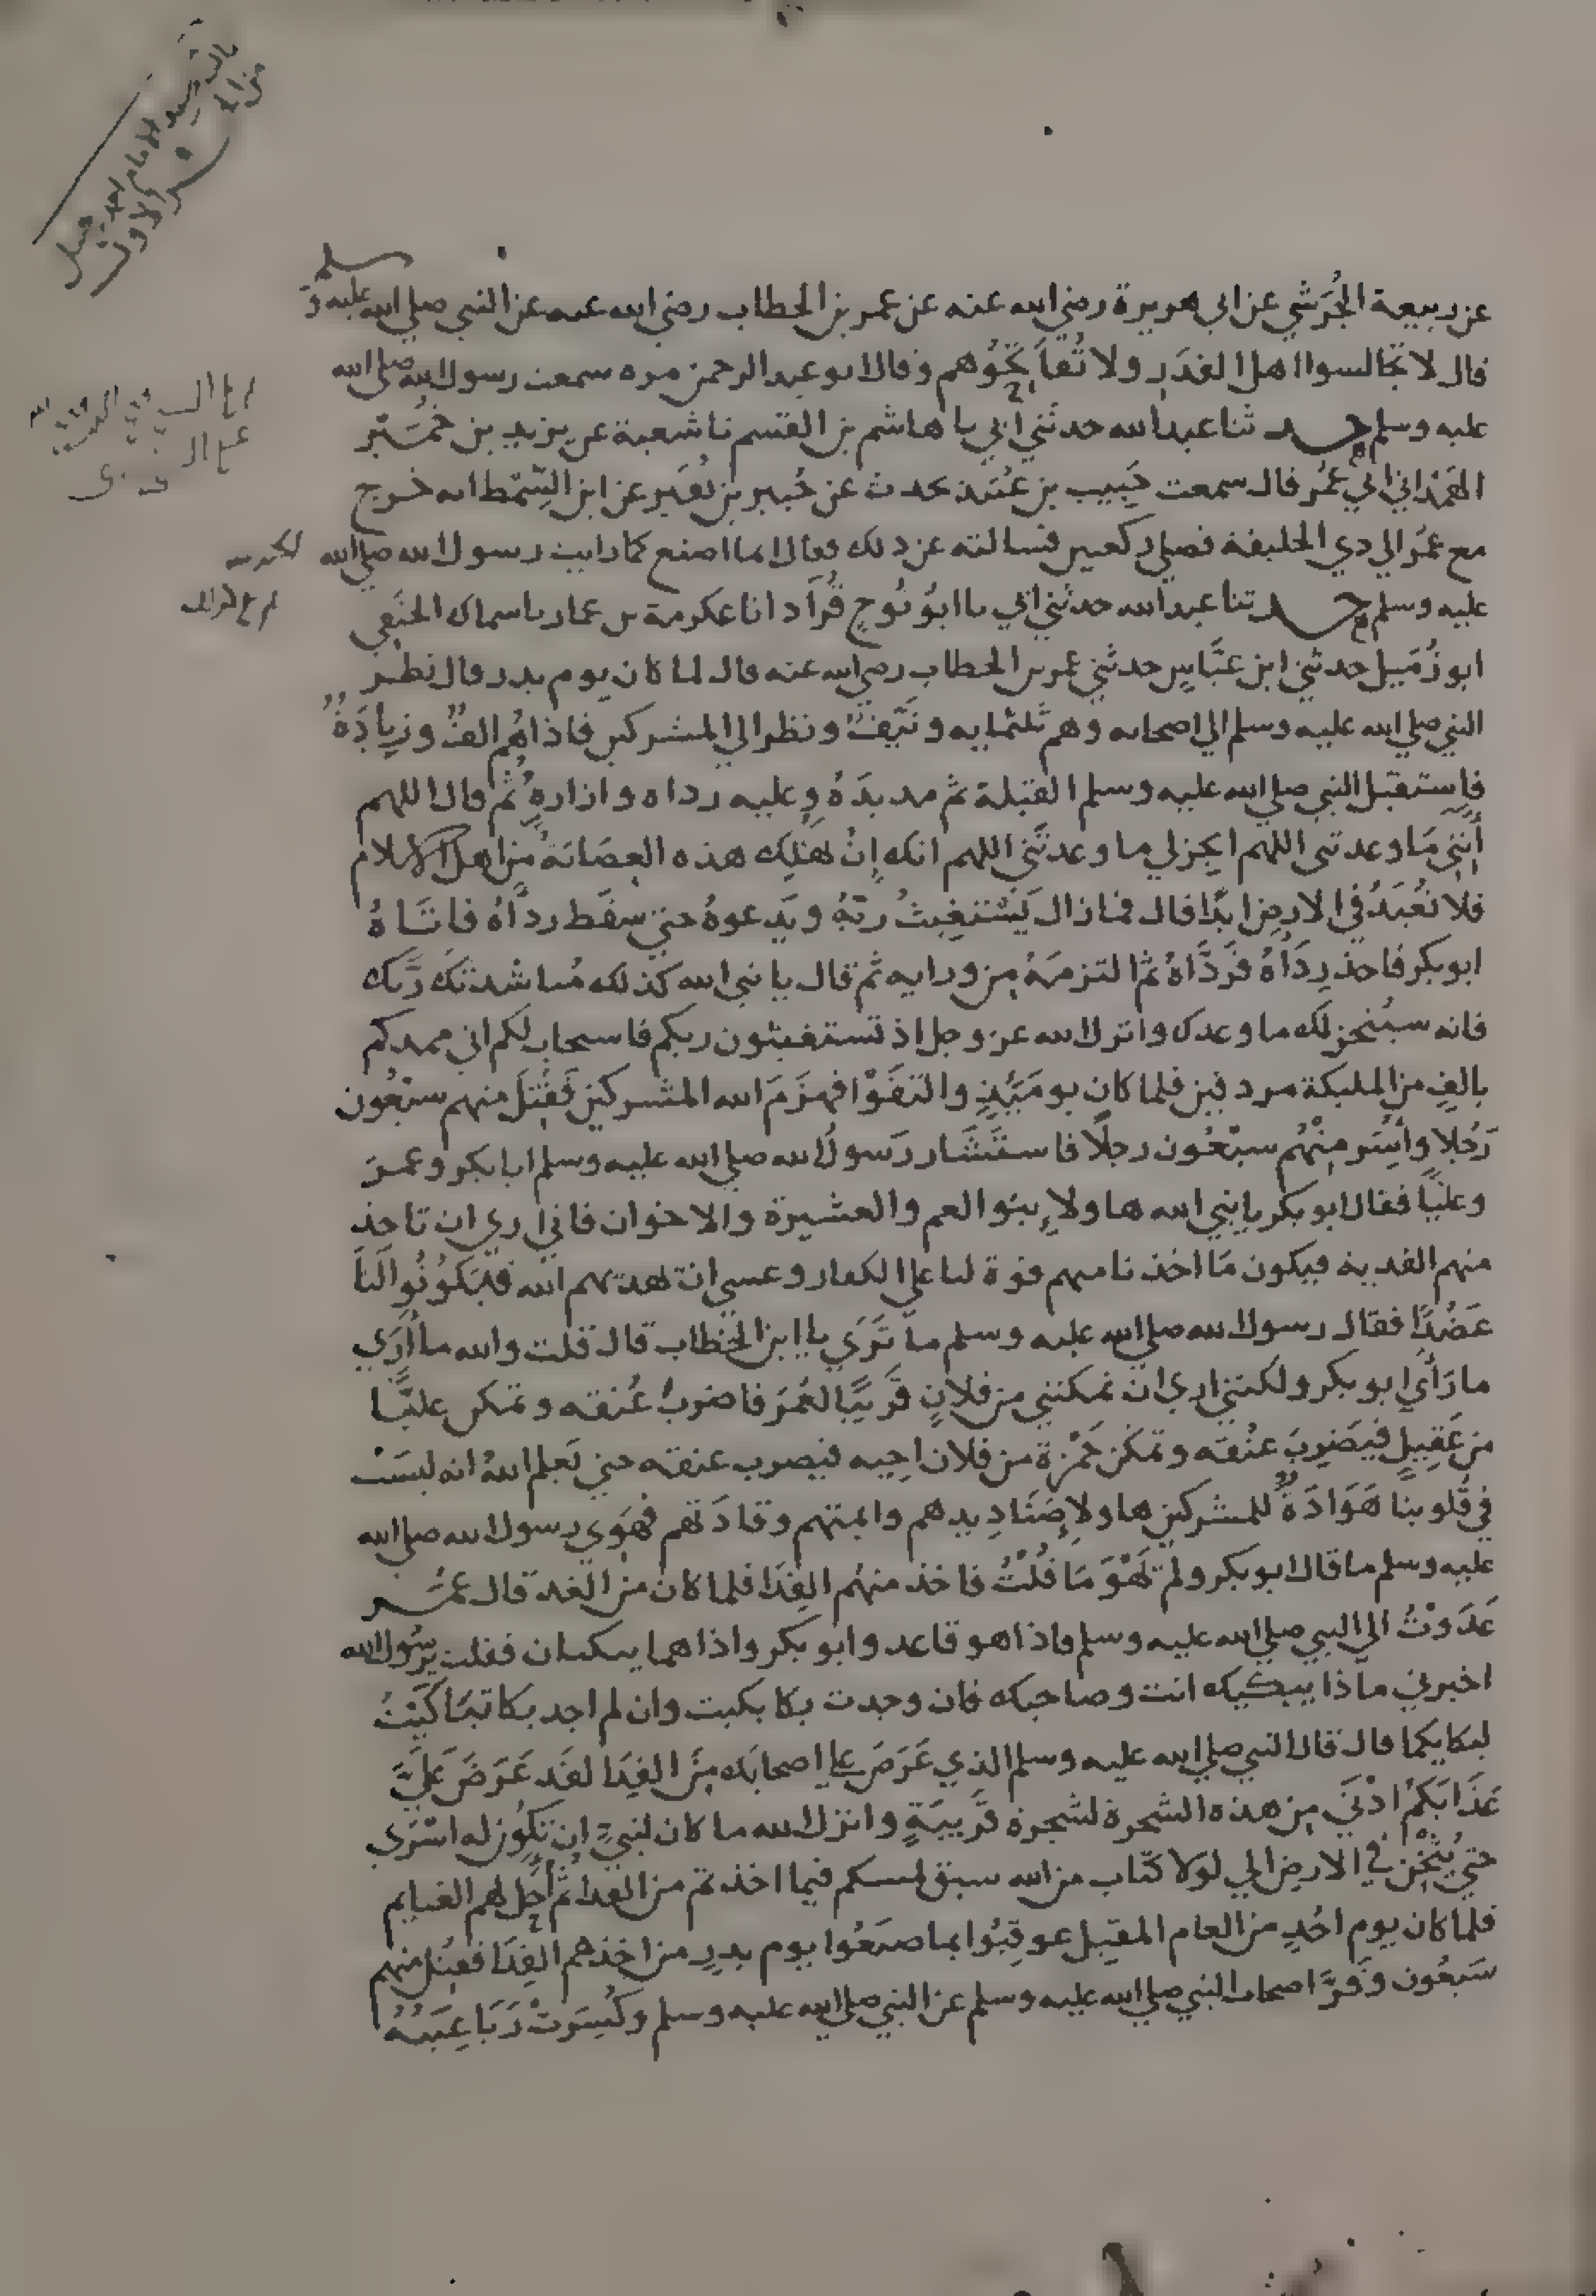 عن ربيعة الجُرَشي عن ابي هريرة رضي الله عنه عن عمر بن الخطاب رضي الله عنه عن النبي صلى الله عليه و سلم
قال لا تجالسوا اهل القدَر ولا تُفاتحُوهم وقال ابو عبد الرحمن مره سمعت رسول الله صلى الله
عليه وسلم حدثنا عبد الله حدثني ابي نا هاشم بن القسم نا شعبة عن يزيد بن خُمَيْر
الهَمْداني ابي عُمَر قال سمعت حَبيب بن عُبَيد يحدث عن جُبير بن نُفَير عن ابن السِّمْط انه خرج
مع عمَر الي ذي الحليفة فصلى ركعتين فسالته عن ذلك فقال انما اصنع كما رايت رسول الله صلى الله
عليه وسلم حدثنا عبد الله حدثني ابي نا ابوُ نُوحٍ قُرَاد انا عكرمة بن عمار نا سماك الحنَفي
ابو زُمَيل حدثني ابن عبَّاسٍ حدثني عمر بن الخطاب رضي الله عنه قال لما كان يوم بدر قال نظر
النبي صلى الله عليه وسلم الي اصحابه وهم ثلثمايه ونَيّفٌ ونظر الي المشركين فاذا هُم الفٌ وزيادَةٌ
فاستقبل النبي صلى الله عليه وسلم القبلة ثم مد يدَهُ وعليه رداه وازاره ثُم قال اللهم
أَيْنَ مَا وعدتني اللهم انجز لي ما وعدتَّني اللهم انك إِنْ تهلِك هذه العِصَابَةُ من اهل الاسلام
فلا تعُبَدُ في الارض ابَدًا قال فما زال يَسْتَغِيثُ ربَّهُ ويَدعوهُ حتي سقَط رداَّهُ فاتَاهُ
ابو بكر فاخذ رِدَاَهُ فرَدَّاهُ ثم التزمَهُ مِن ورايه ثم قال يا نبي الله كذلك مُناشدتك ربَّك
فانه سيُنجز لك ما وعدك وانزل الله عز وجل اذ تستغيثون ربكم فاستجاب لكم اني ممدكم
بالفٍ من المليكة مردفين فلما كان يومَئِذٍ والتقَوْا فهزَمَ الله المشركين فَقُتِلَ منهم سبْعُون
رَجُلا وأُسِر مِنْهُم سبْعُون رجلًا فاستَشَار رَسولُ الله صلى الله عليه وسلم ابا بكر وعمرَ
وعليًّا فقال ابو بكر يا نبي الله هاولاءِ بنو العم والعشيرة والاخوان فاني اري ان تاخذ
منهم الفديه فيكون مَا اخذنا منهم قوة لنا علي الكفار وعسي ان يهديهم الله فيَكوُنُوا لَنا
عَضُدًا فقال رسول الله صلى الله عليه وسلم ما تَرَي يا ابن الخطاب قال قلت والله ما أَرَي
ما رَأَي ابو بكر ولكنني اري ان تمكنني من فلانٍ قَريبًا لعُمَرَ فاضربَ عُنقه وتمكن عليًّا
من عَقِيلٍ فيَضْرِبَ عنْقَه وتمكن حَمْزة من فلان اخيه فيضرب عنقه حتي يَعلم اللهُ انه ليسَتْ
في قُلوبنا هَوَادَةٌ للمشركين هاولاءِ صَنَادِيدهم وايمتهم وقادَتهم فهَوِي رسول الله صلى الله
عليه وسلم ما قال ابو بكر ولم يَهْوَ مَا قُلْتُ فاخذ منهُم الفِدَا فلما كان من الغد قال عُمَر
غَدَوْتُ الي النبي صلى الله عليه وسلم فاذا هو قاعد وابو بكر واذا هما يبكيان فقلت يرسُول الله
اخبرني ماذا يبكيك انت وصاحبك فان وجدت بكا بكيت وان لم اجد بكا تبَاكَيْتُ
لبكايكما قال قال النبي صلى الله عليه وسلم الذي عَرَضَ علي اصحابك مِنَ الفِدَا لقد عَرَضَ عَلَيَّ
عَذَابَكُمْ ادْنَي مِن هذه الشجرة لشجرة قَريبَةٍ وانزل الله ما كان لنبيٍّ ان تكُون له اسْرَي
حتي يُثْخِنَ في الارض الي لولا كتاب من الله سبق لمسكم فيما اخذتم من الفدا ثم أُحِل لهم الغنايم
فلما كان يوم احُدٍ من العام المقبِل عوقِبُوا بما صنَعُوا يوم بدرٍ من اخذهم الفِدَا فقتل منهم
سَبعُون وفَرَّ اصحاب النبي صلى الله عليه وسلم عن النبي صلى الله عليه وسلم وكُسِرَتْ رَبَاعِيَتُهُ